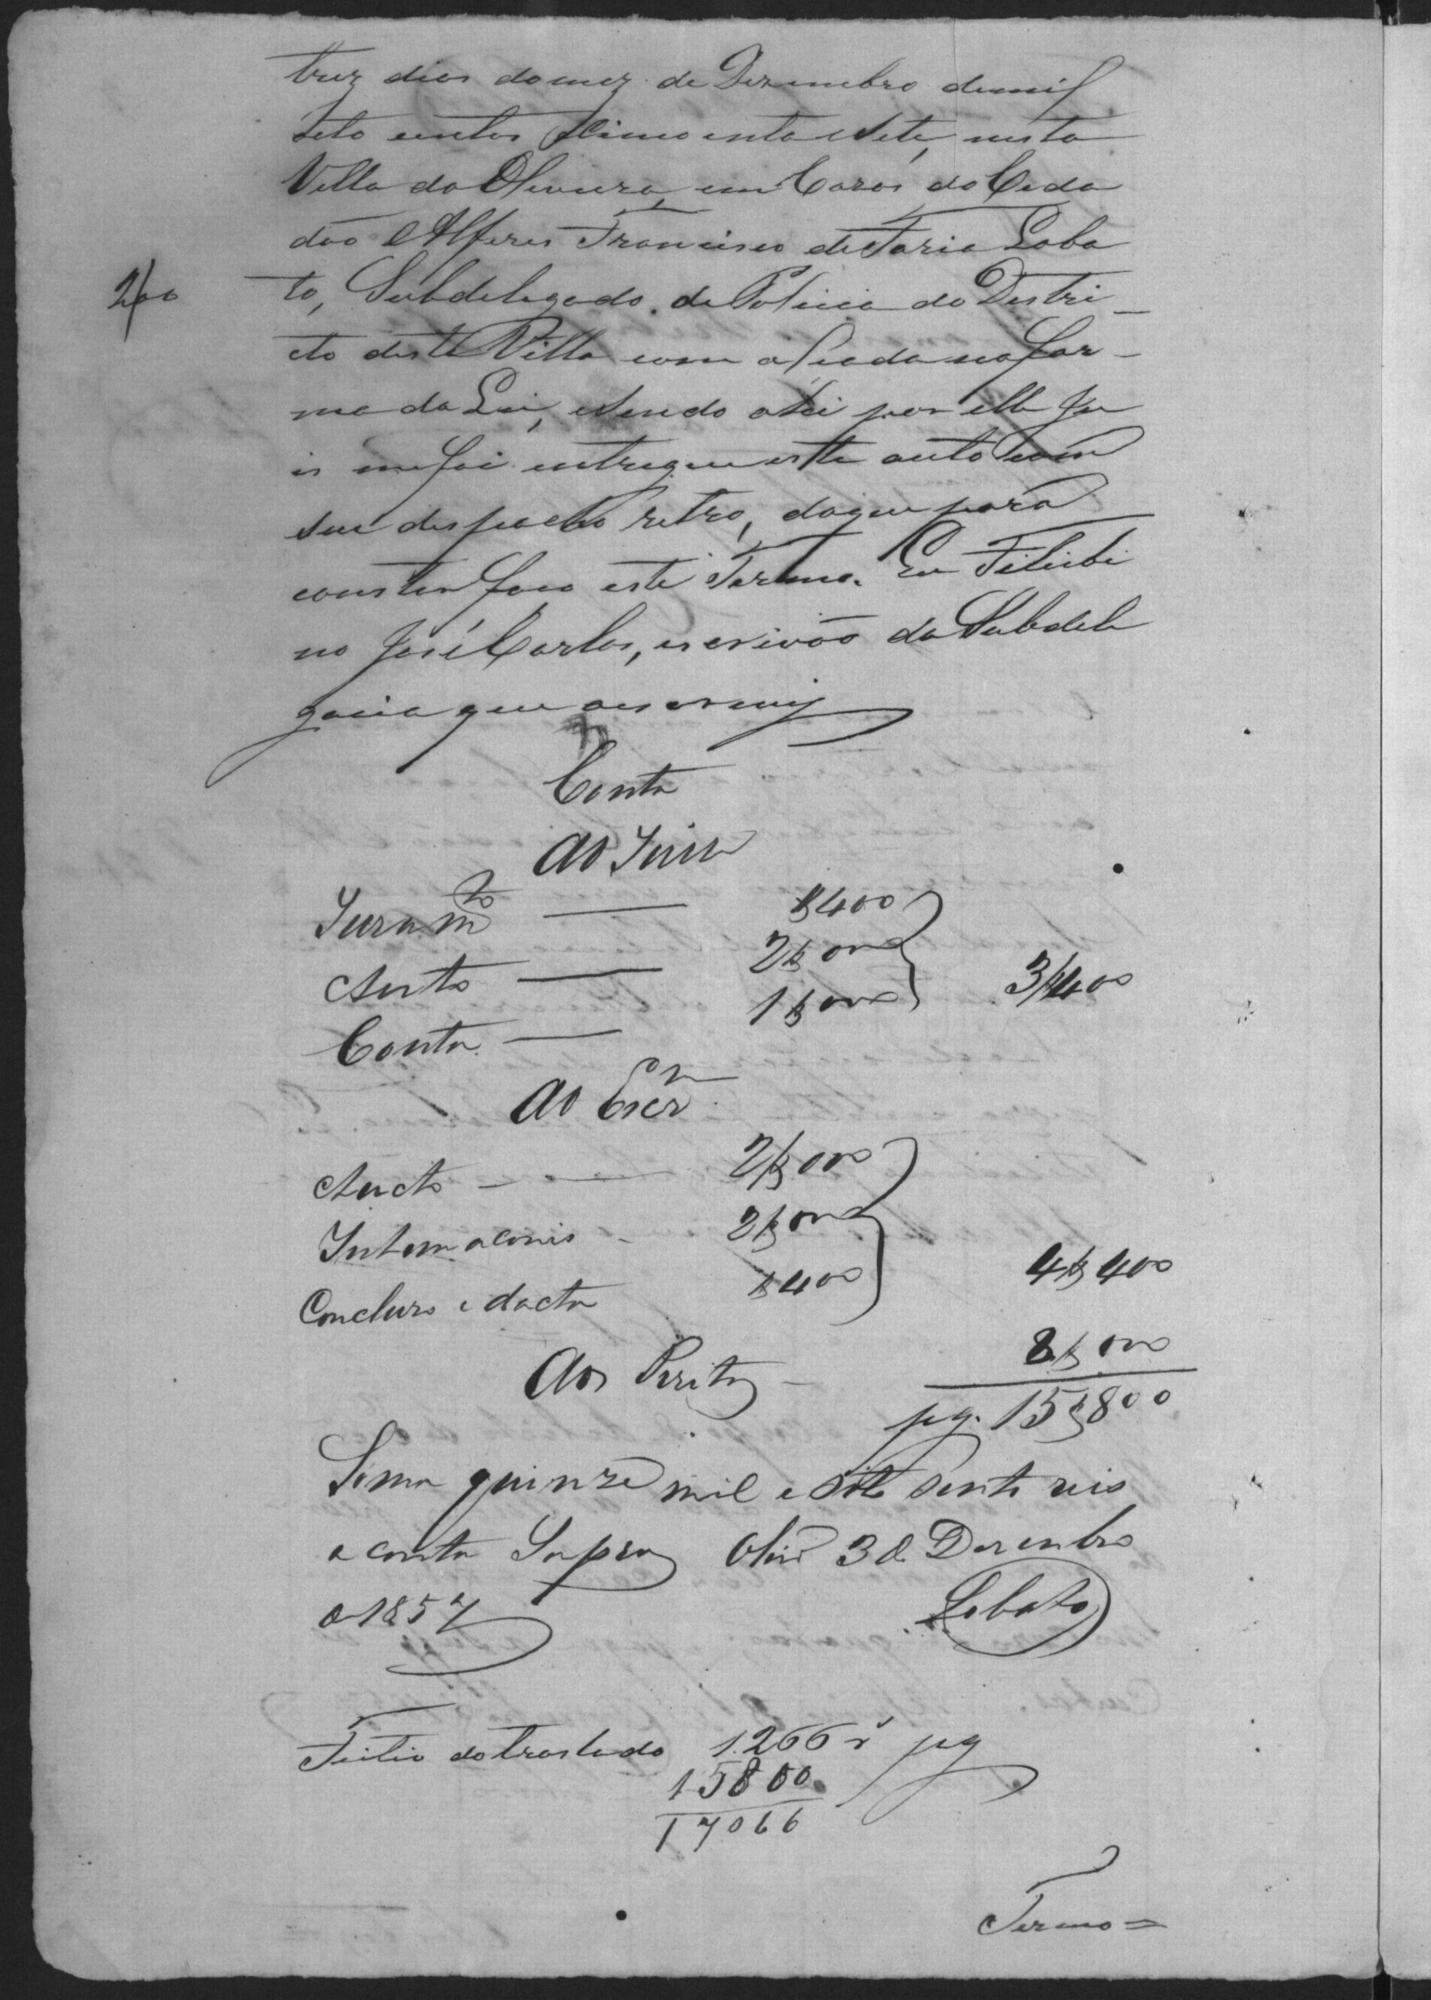 trez dias do mez de Dezembro de mil
oito centos cincoenta e Sete, nesta
Villa da Oliveira, em Cazas do Ceda
dão e Alferes Francisco de Faria Loba
200
to, Subdelegado de Policia do Destri-
cto desta Villa com alçada na for-
ma da Lei, e sendo ahi por elle Ju
is me foi entregue este auto com
seu despacho retro, do que para
constar faço este Termo. Eu Felisbi
no José Carlos, escrivão da Subdele
gacia que o escrevij
Conta
Ao Juiz
Juram.to — $400
Auto — 2$000
Conta — 1$000
3$400
Ao Escr.m
Aucto — 2$000
Intimaconis - 2$000
Concluzo e dacta $400
4$400
Aos Peritos — 8$000
pg. 15$800
Soma quinze mil e oito sento reis
a conta Supra Olivr.a 3 de Dezenbro
de 1857
Lobato
Feitio do traslado 1.266 r pg
15800
17066
Termo =